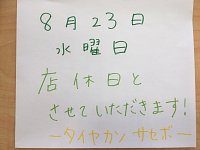 8月23日
水曜日
店休日と
させていただきます!
ータイヤカン サセボー